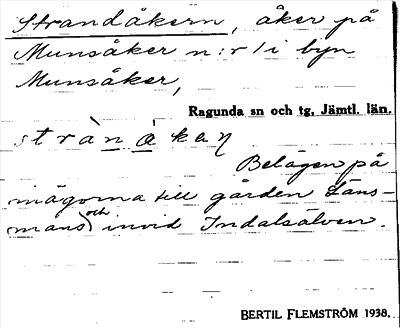 Strandåkern, åker på
Munsåker n:r 1 i byn
Munsåker,
Ragunda sn och tg, Jämtl. län.
stràn åkaɳ
Belägen på
mågorna till gården Läns-
mans och invid Indalsälven.
BERTIL FLEMSTRÖM 1938.